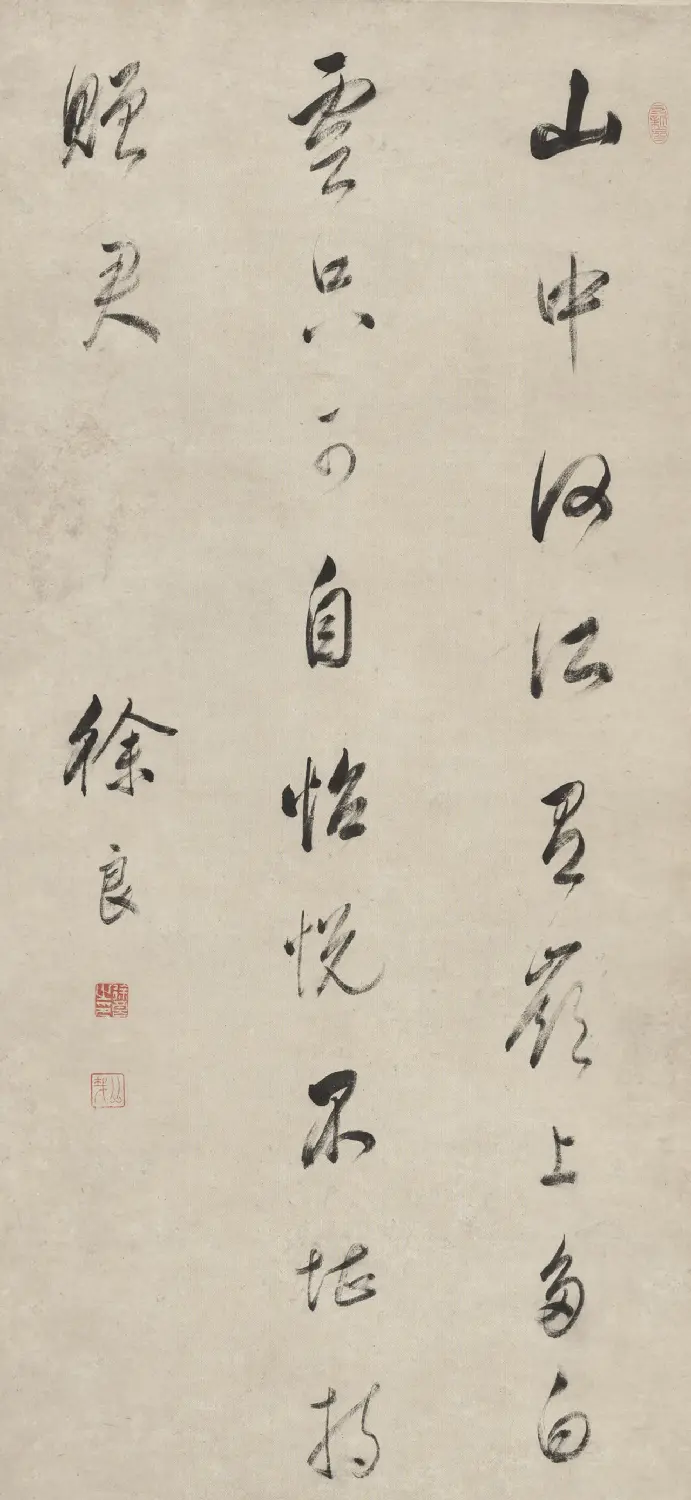 山中何所有嶺上多白
雲只可自怡悅不堪持
贈君
徐良